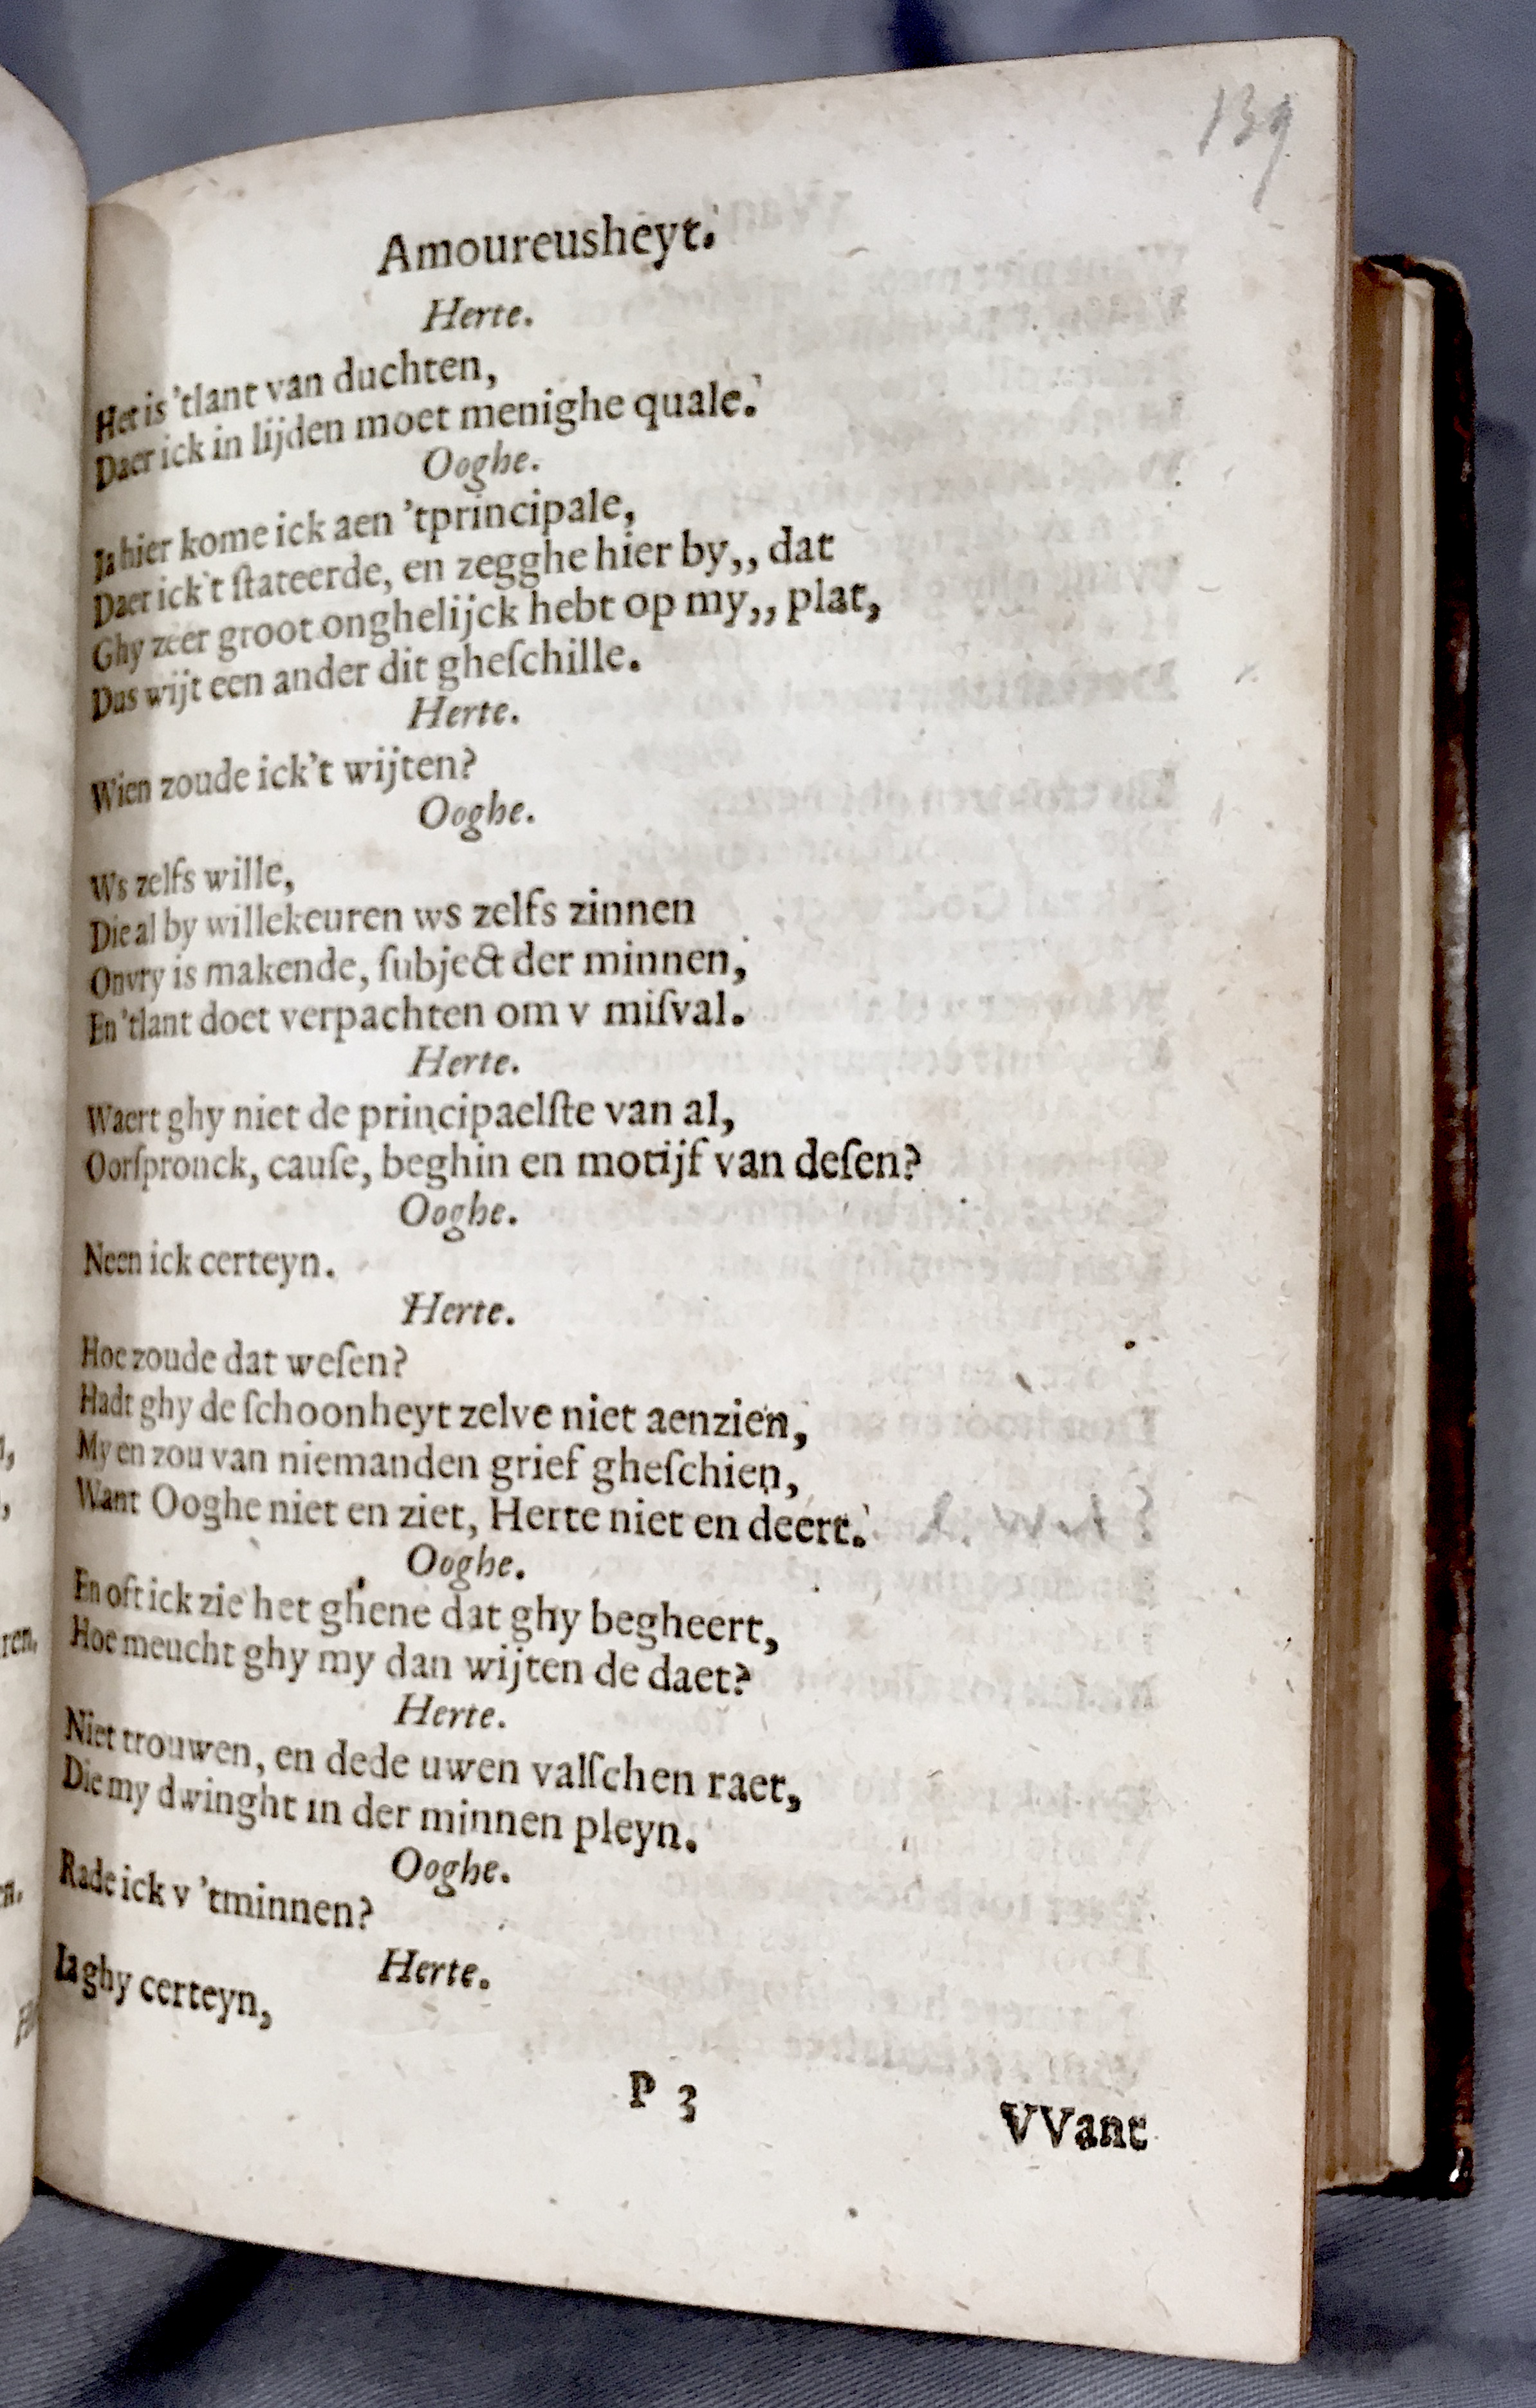 139
Amoureusheyt.
Herte.
Het is 'tlant van duchten,
Daer ick in lijden moet menighe quale.
Ooghe.
Ia hier kome ick aen 'tprincipale,
Daer ick't ſtateerde, en zegghe hier by,, dat
Ghy zeer groot onghelijck hebt op my,, plat,
Dus wijt een ander dit gheſchille.
Herte.
Wien zoude ick't wijten?
Ooghe.
Ws zelfs wille,
Die al by willekeuren ws zelfs zinnen
Onvry is makende, ſubject der minnen,
En 'tlant doet verpachten om v miſval.
Herte.
Waert ghy niet de principaelſte van al,
Oorſpronck, cauſe, beghin en motijf van deſen?
Ooghe.
Neen ick certeyn.
Herte.
Hoe zoude dat weſen?
Hadt ghy de ſchoonheyt zelve niet aenzien,
My en zou van niemanden grief gheſchien,
Want Ooghe niet en ziet, Herte niet en deert.
Ooghe.
En oft ick zie het ghene dat ghy begheert,
Hoe meucht ghy my dan wijten de daet?
Herte.
Niet trouwen, en dede uwen valſchen raet,
Die my dwinght in der minnen pleyn.
Ooghe.
Rade ick v 'tminnen?
Herte.
Ia ghy certeyn,
P 3
VVant